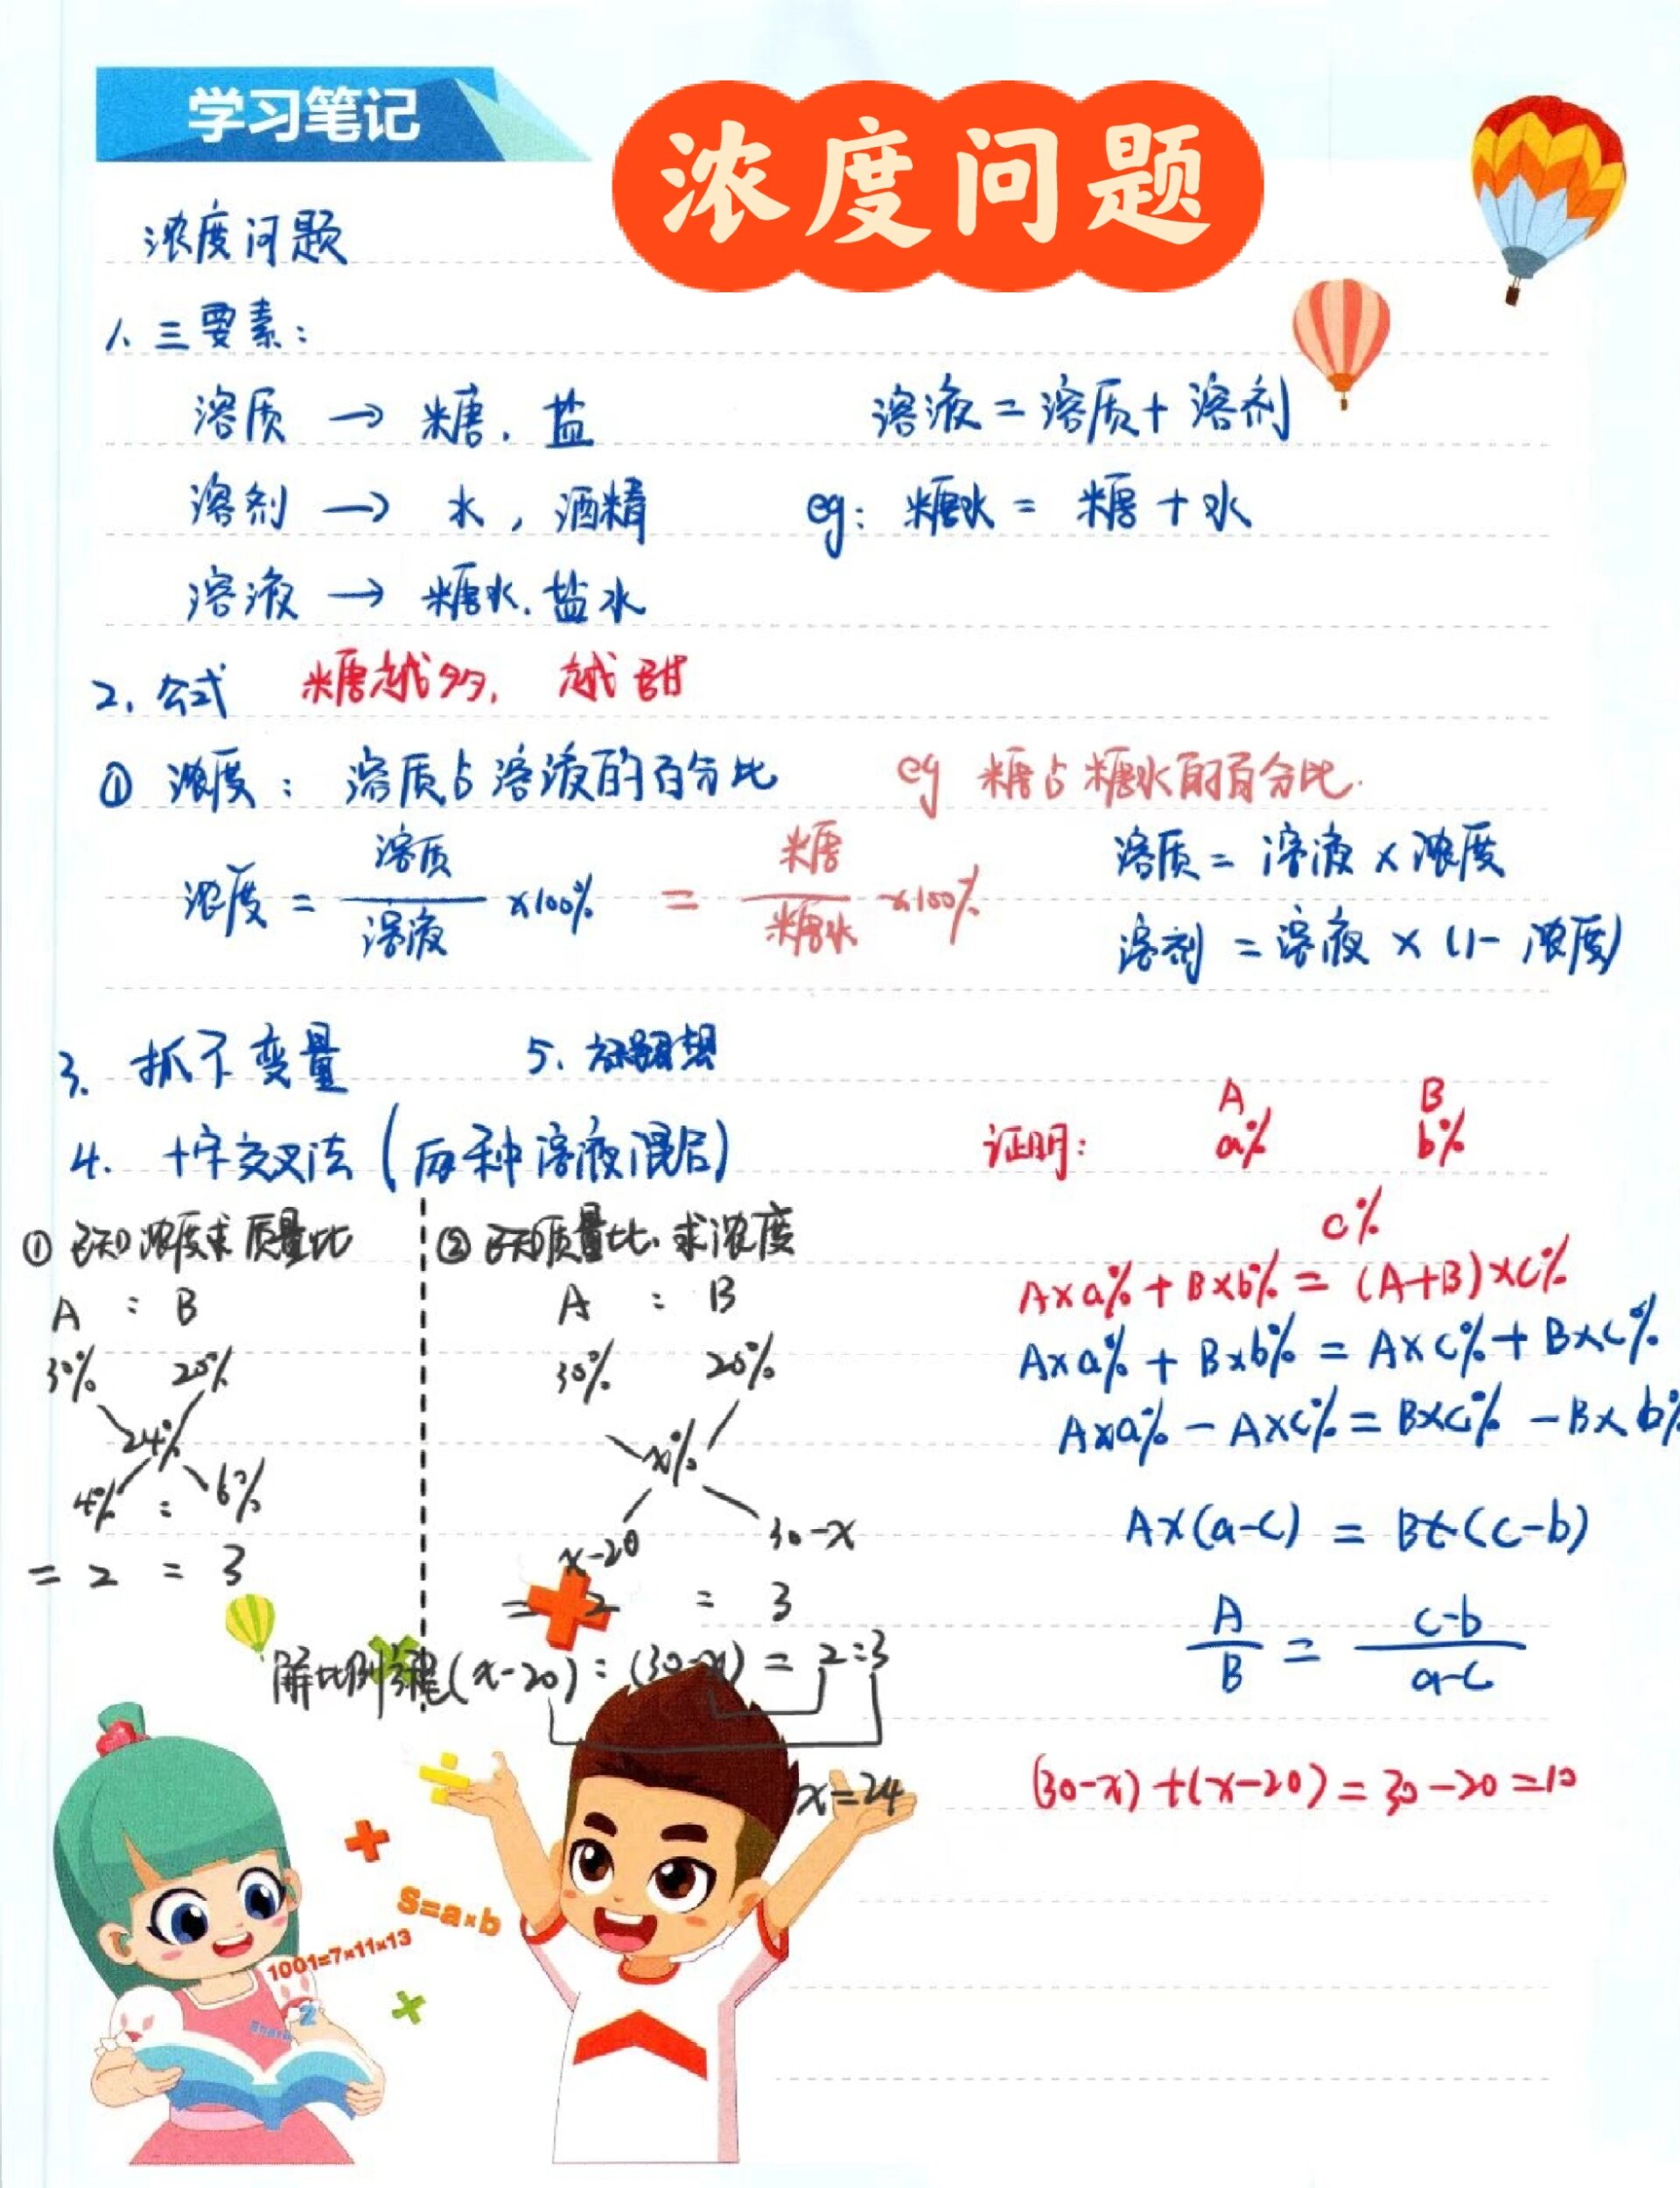 学习笔记
浓度问题
浓度问题
1、三要素：
溶质 → 糖．盐
溶液 = 溶质 + 溶剂
溶剂 → 水，酒精
eg: 糖水 = 糖 + 水
溶液 → 糖水．盐水
2．公式 糖越多，越甜
① 浓度：溶质占溶液的百分比 eg 糖占糖水的百分比.
浓度 = 溶质/溶液 ×100% = 糖/糖水 ×100%
溶质 = 溶液 × 浓度
溶剂 = 溶液 × (1- 浓度)
3. 抓不变量 5、
4. 十字交叉法 (两种溶液混合)
① 已知浓度求质量比
A : B
30% 20%
24%
4% : 6%
= 2 = 3
② 已知质量比．求浓度
A : B
30% 20%
x%
x-20 30-x
= 2 = 3
解比例 (x-20) : (30-x) = 2:3
x=24
证明：
A B
a% b%
c%
A×a% + B×b% = (A+B)×c%
A×a% + B×b% = A×c% + B×c%
A×a% - A×c% = B×c% - B×b%
A×(a-c) = B×(c-b)
A/B = c-b/a-c
(30-x)+(x-20)=30-20=10
S=a×b
1001=7×11×13
2